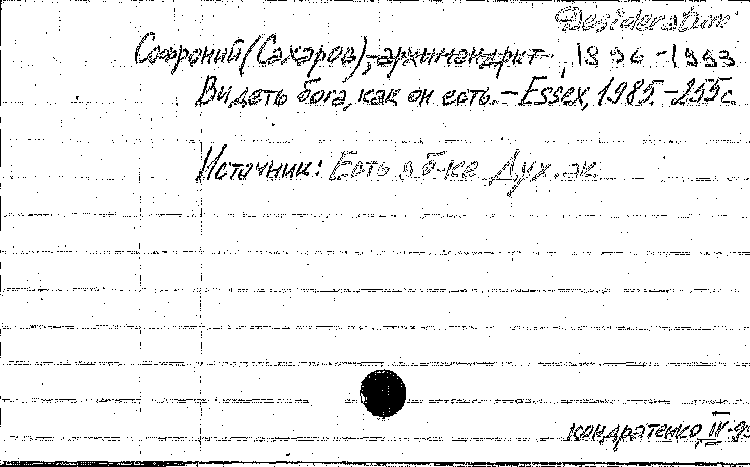 Desideratum
Софроний (Сахаров), архимандрит, 1896-1993
Видеть бога, как он есть. – Essex, 1985. – 255 с
Источник: Есть в б-ке Дух. ак.
Кондратенко, IV-9